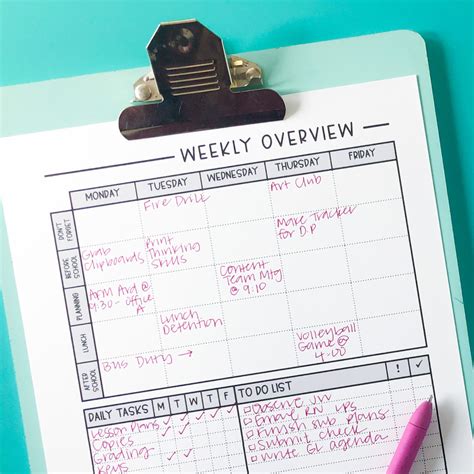 WEEKLY OVERVIEW
MONDAY TUESDAY WEDNESDAY THURSDAY FRIDAY
DON'T
FORGET
Fire Drill
Art Club
BEFORE
SCHOOL
Grab
Clipboards
Print
Thinking
Skills
Make Tracker
for DP
PLANNING
ARM Ard @
9:30 - Office
A
Content
Team Mtg
@ 9:10
LUNCH
Lunch
Detention
Volleyball
Game @
4:00
AFTER
SCHOOL
Bus Duty →
DAILY TASKS M T W T F
Lesson Plans ✓ ✓ ✓ ✓
Copies ✓
Grading ✓
Keys
TO DO LIST ! ✓
Observe JM
Email RN LPS
Finish sub plans
Submit check
Write GL agenda